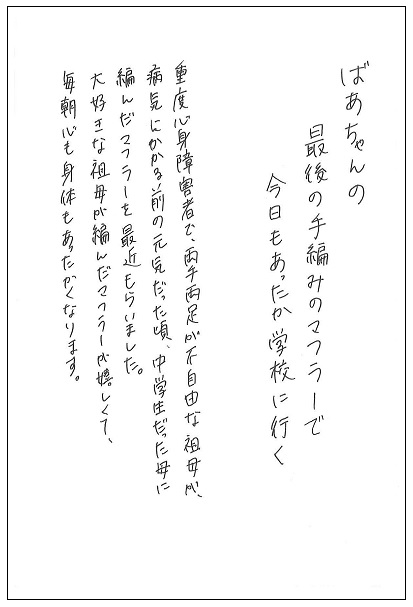 ばあちゃんの
最後の手編みのマフラーで
今日もあったか学校に行く
重度心身障害者で、両手両足が不自由な祖母が、
病気にかかる前の元気だった頃、中学生だった母に
編んだマフラーを最近もらいました。
大好きな祖母が編んだマフラーが嬉しくて、
毎朝心も身体もあったかくなります。